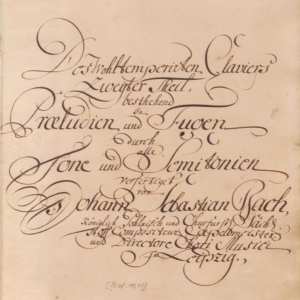 Des Wohltemperirten Claviers
Zweyter Theil,
bestehend
in
Præludien und Fugen
durch
alle
Tone und Semitonien
verfertiget
von
Johann Sebastian Bach,
Königlich Pohlnisch und Churfürstl. Sächs.
Hoff Compositeur Capellmeister
und Directore Chori Musici
in Leipzig.